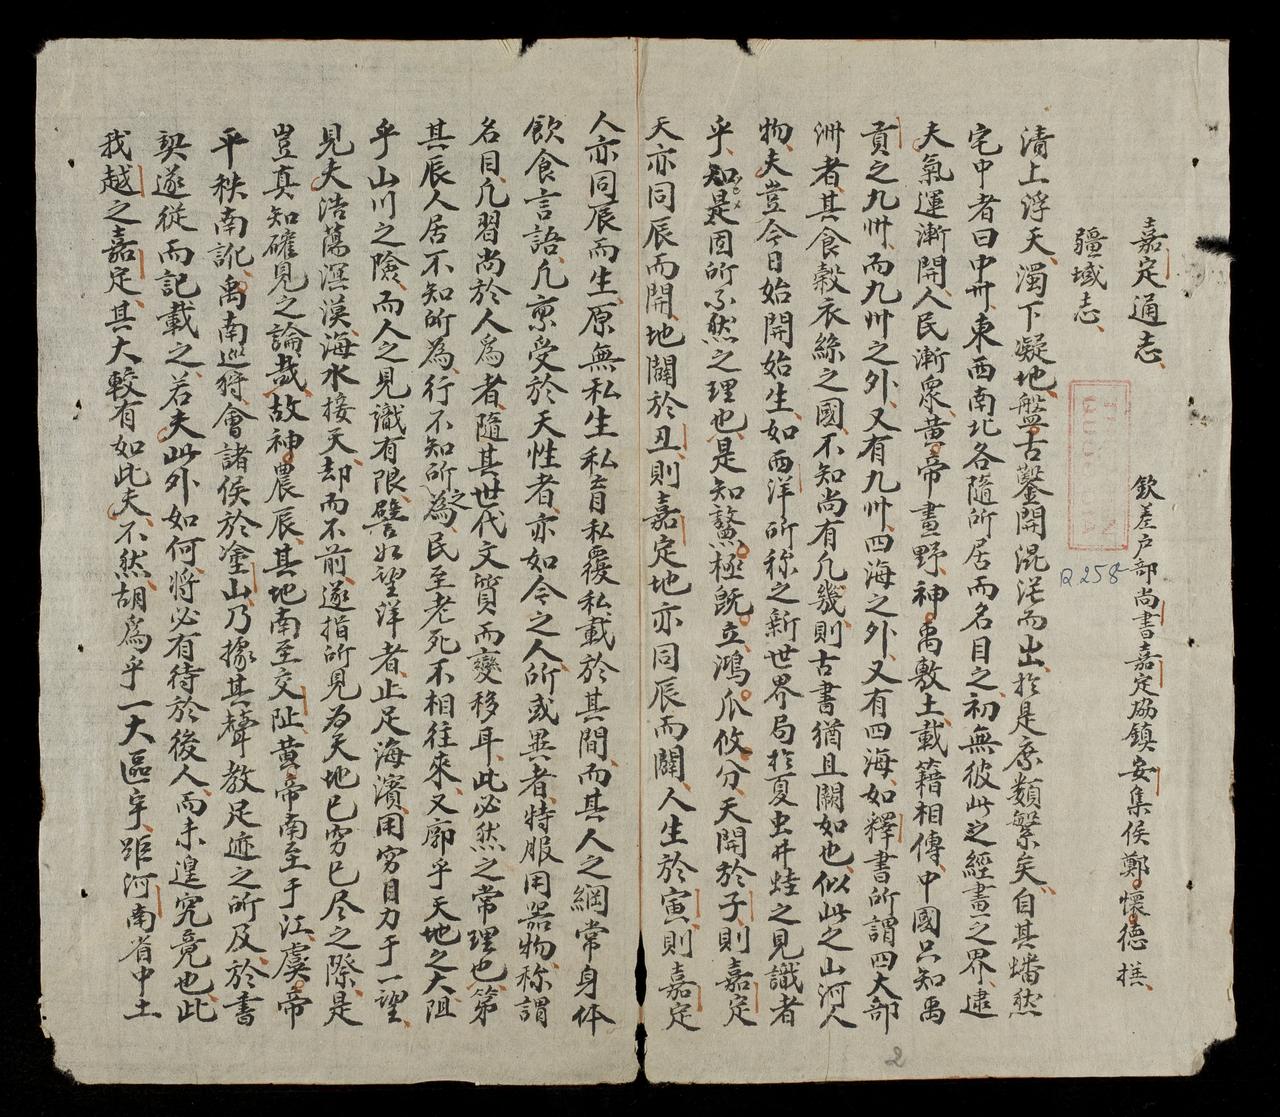 嘉定通志
欽差戶部尚書嘉定城鎮安集侯鄭懷德撰
疆域志
清上浮天濁下凝地盤古鑿開混茫而出於是庶類繁矣自其蟠然
宅中者曰中卅東西南北各隨所居而名目之初無彼此之經書之界逮
夫氣運漸開人民漸衆黃帝畫野神禹敷土載籍相傳中國只知禹
貢之九卅而九卅之外又有九卅四海之外又有四海如釋書所謂四大部
洲者其食穀衣絲之國不知尚有几幾則古書猶且闕如也似此之山河人
物夫豈今日始開始生如西洋所称之新世界局於夏虫井蛙之見識者
乎知是固所不然之理也是知鰲極既立鴻爪攸分天開於子則嘉定
天亦同辰而開地闢於丑則嘉定地亦同辰而闢人生於寅則嘉定
人亦同辰而生原無私生私育私覆私載於其間而其人之綱常身体
飲食言語凡稟受於天性者亦如今之人所或異者特服用器物称謂
名目凡習尚於人爲者隨其世代文質而變移耳此必然之常理也第
其辰人居不知所為行不知所之為民至老死不相往來又廓乎天地之大阻
乎山川之險而人之見識有限譬如望洋者止足海濱用窮目力于一望
見夫浩蕩溟漠海水接天却而不前遂指所見为天地已穷已尽之際是
豈真知確見之論哉故神農辰其地南至交趾黃帝南至于江虞帝
平秩南訛禹南巡狩會諸侯於塗山乃據其聲教足迹之所及於書
契遂從而記載之若夫此外如何將必有待於後人而未遑究竟也此
我越之嘉定其大較有如此夫不然胡爲乎一大區宇距河南省中土
R 258
2